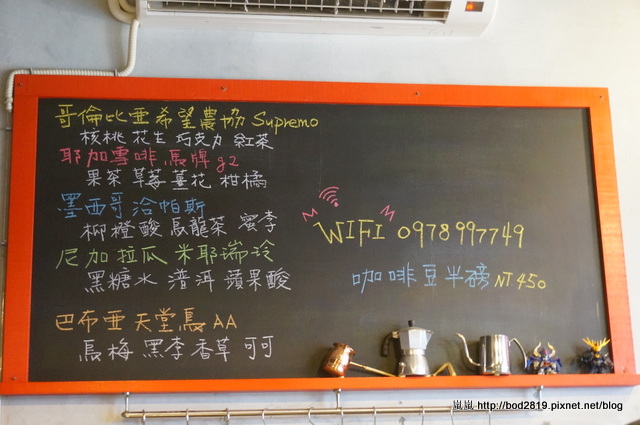 哥倫比亞希望農協 Supremo
核桃 花生 巧克力 紅茶
耶加雪啡 馬牌 g2
果茶 草莓 薑花 柑橘
墨西哥 洽帕斯
柳橙酸 烏龍茶 蜜李
尼加拉瓜 米耶瑞玲
黑糖水 普洱 蘋果酸
巴布亞 天堂鳥 AA
烏梅 黑李 香草 可可
WIFI 0978997749
咖啡豆半磅 NT 450
嵐嵐-http://bod2819.pixnet.net/blog